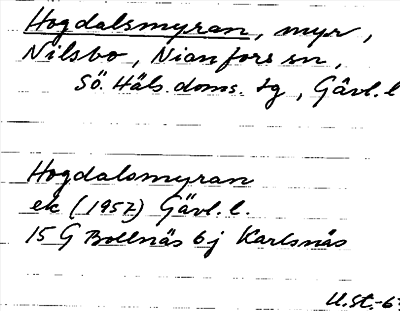 Hogdalsmyran, myr,
Nilsbo, Nianfors sn,
Sö. Häls. doms. tg, Gävl. l
Hogdalsmyran
ek (1957) Gävl. l.
15 G Bollnäs 6 j Karlsnäs
U.St.-6